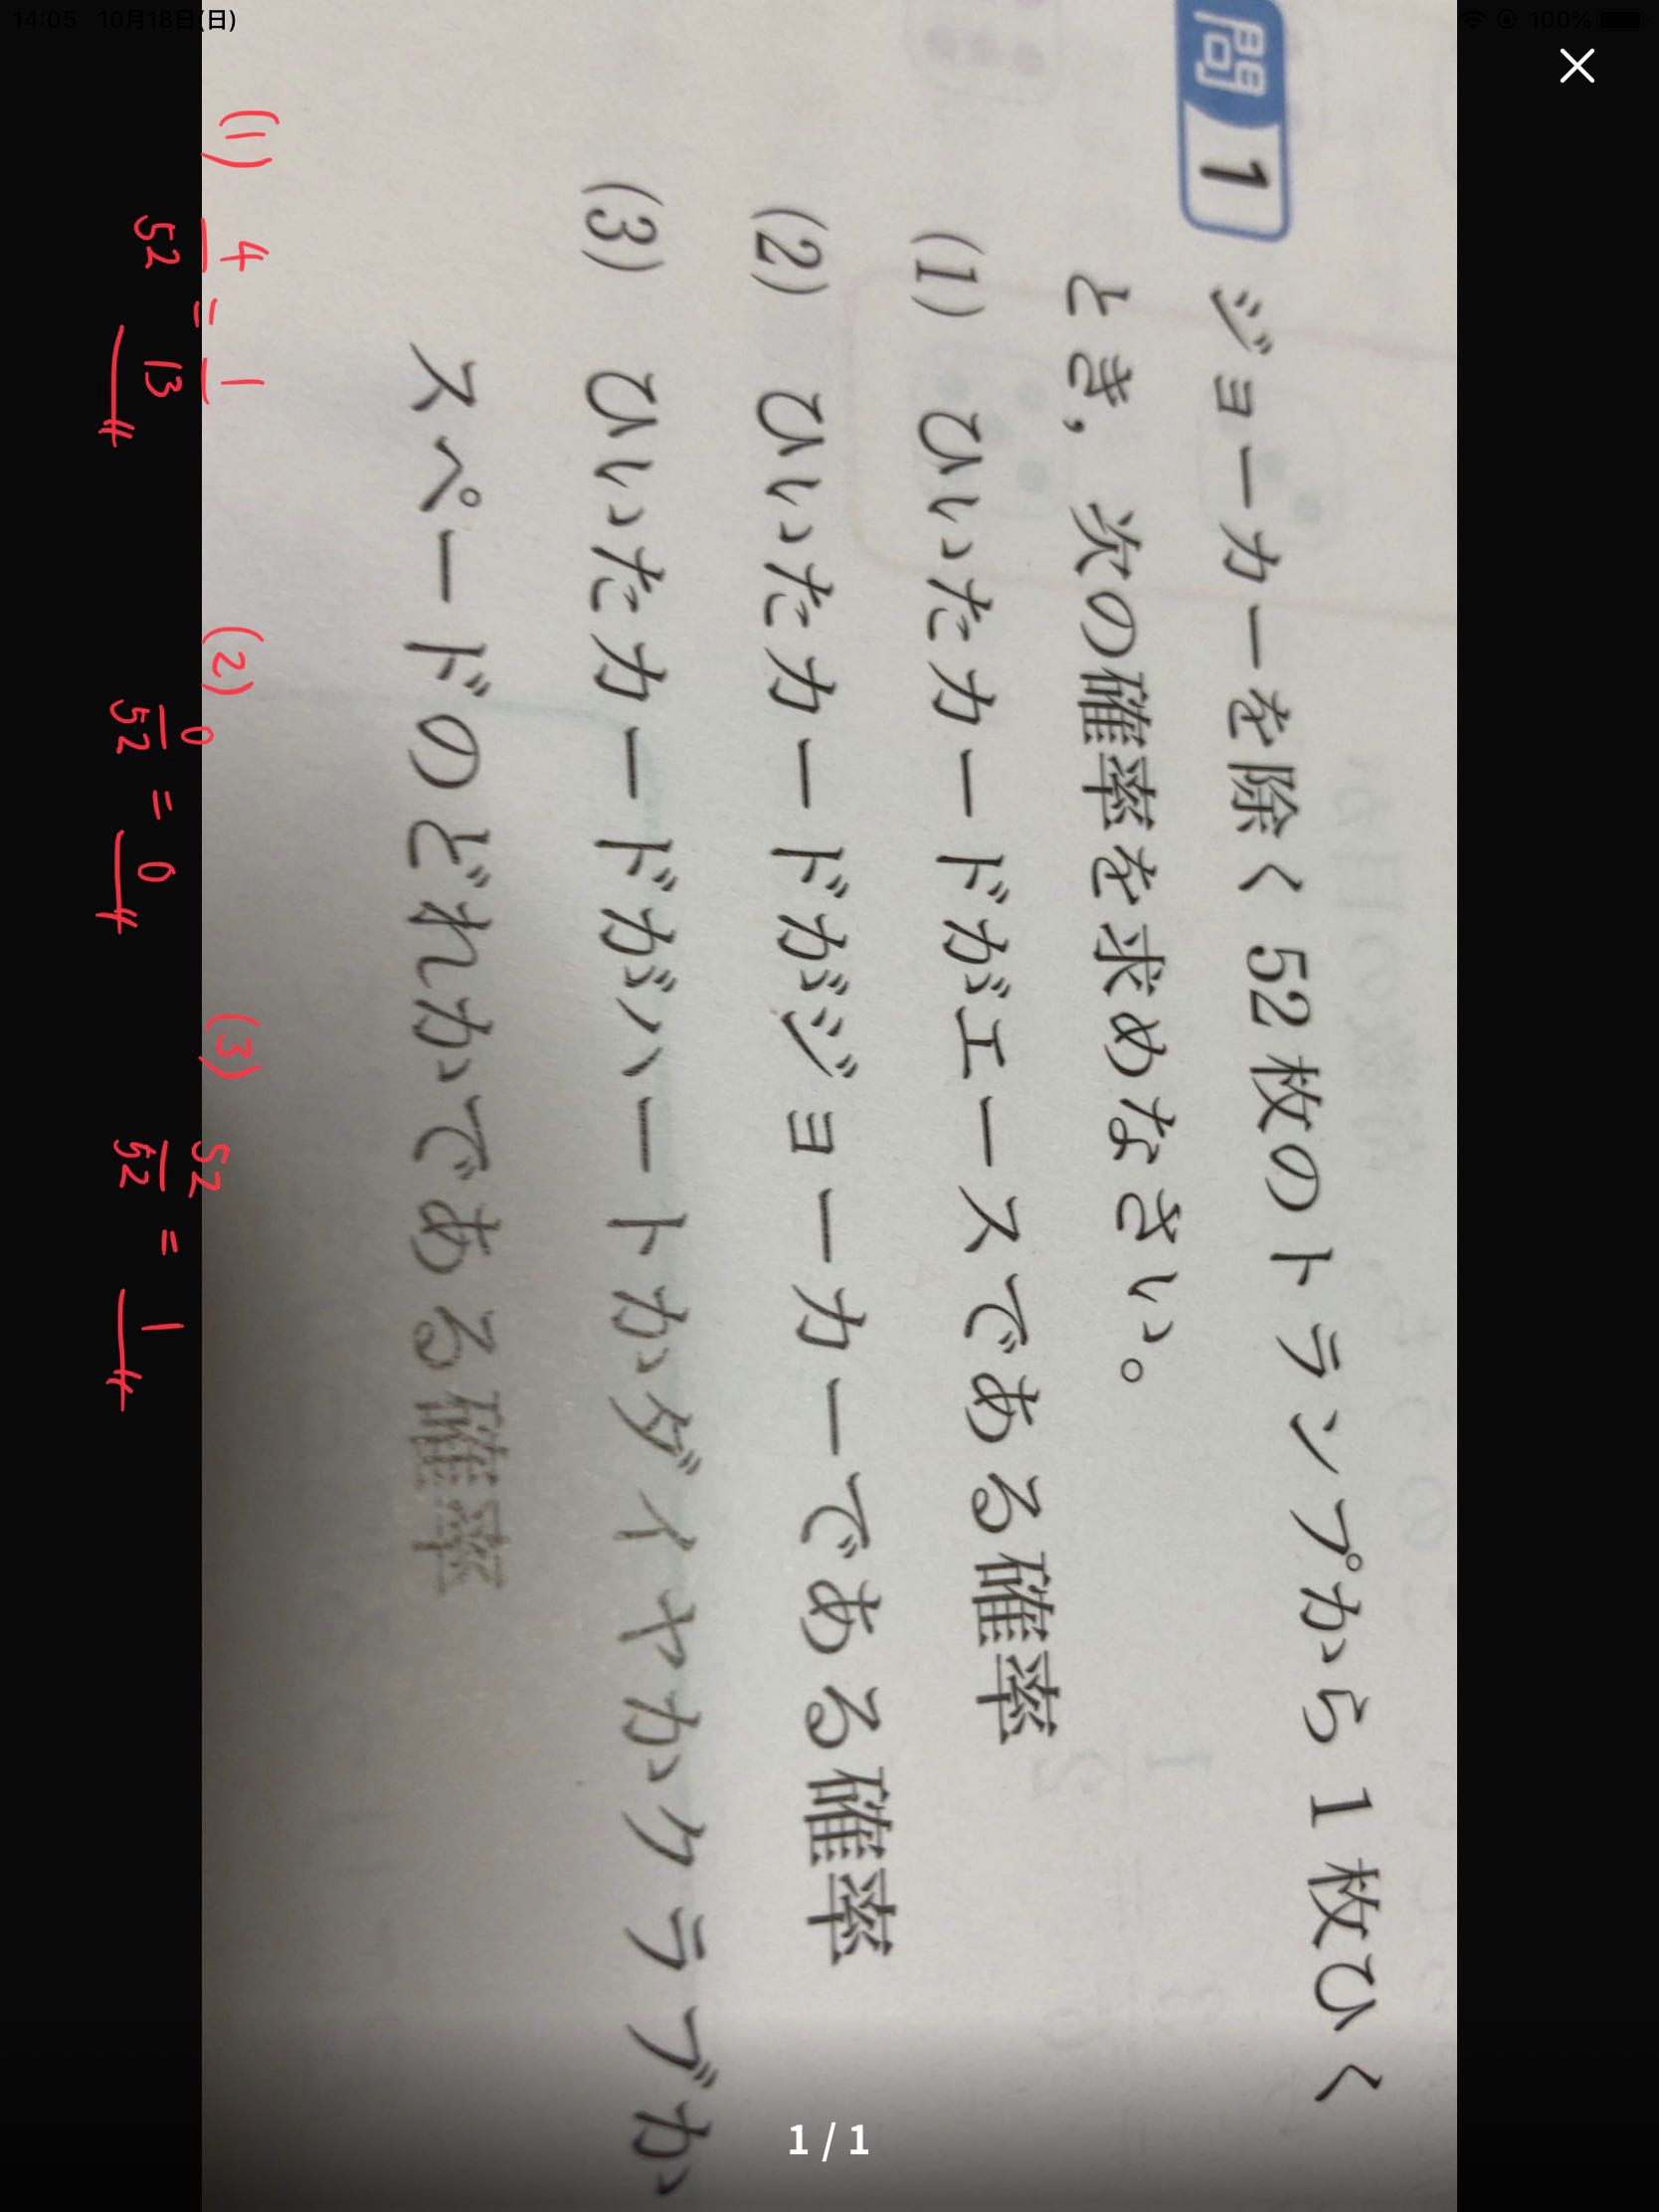 14:05 10月18日(日)
100%
問1 ジョーカーを除く 52 枚のトランプから 1 枚ひく
とき，次の確率を求めなさい。
(1) ひいたカードがエースである確率
(2) ひいたカードがジョーカーである確率
(3) ひいたカードがハートかダイヤかクラブか
スペードのどれかである確率
(1) 4/52 = 1/13
(2) 0/52 = 0
(3) 52/52 = 1
1 / 1